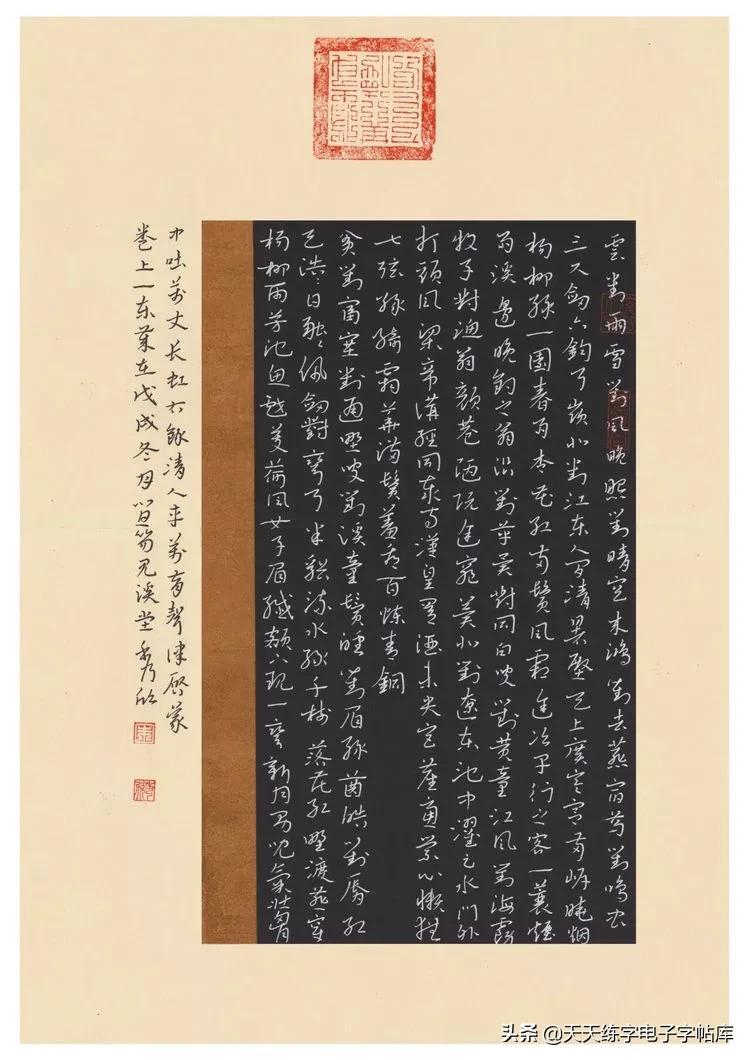 雲對雨雪對風晚照對晴空來鴻對去燕宿鳥對鳴虫
三尺劍六鈞弓嶺北對江東人間清暑殿天上廣寒宮兩岸曉烟
楊柳綠一園春雨杏花紅兩鬢風霜途次早行之客一蓑煙
雨溪邊晚釣之翁沿對革異對同白叟對黃童江風對海霧
牧子對漁翁顏巷陋阮途窮冀北對遼東池中濯足水門外
打頭風梁帝講經同泰寺漢皇置酒未央宮塵慮縈心懶撫
七弦綠綺霜華滿鬢羞看百煉青銅
貧對富塞對通野叟對溪童鬢皤對眉綠齒皓對唇紅
天浩浩日融融佩劍對彎弓半谿流水綠千樹落花紅野渡燕穿
楊柳雨芳池魚戲芰荷風女子眉纖額下現一彎新月男兒氣壯胸
中吐萬丈長虹右錄清人車萬育聲律啓蒙
卷上一東葉在戊戌冬月溪堂秀欣
头条 @天天练字电子字帖库